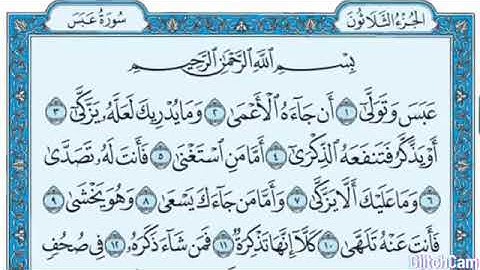 الجزء الثلاثون
سورة عبس
بِسْمِ اللَّهِ الرَّحْمَٰنِ الرَّحِيمِ
عَبَسَ وَتَوَلَّىٰ ١ أَن جَاءَهُ الْأَعْمَىٰ ٢ وَمَا يُدْرِيكَ لَعَلَّهُ يَزَّكَّىٰ ٣
أَوْ يَذَّكَّرُ فَتَنفَعَهُ الذِّكْرَىٰ ٤ أَمَّا مَنِ اسْتَغْنَىٰ ٥ فَأَنتَ لَهُ تَصَدَّىٰ
٦ وَمَا عَلَيْكَ أَلَّا يَزَّكَّىٰ ٧ وَأَمَّا مَن جَاءَكَ يَسْعَىٰ ٨ وَهُوَ يَخْشَىٰ ٩
فَأَنتَ عَنْهُ تَلَهَّىٰ ١٠ كَلَّا إِنَّهَا تَذْكِرَةٌ ١١ فَمَن شَاءَ ذَكَرَهُ ١٢ فِي صُحُفٍ
GlitchCam